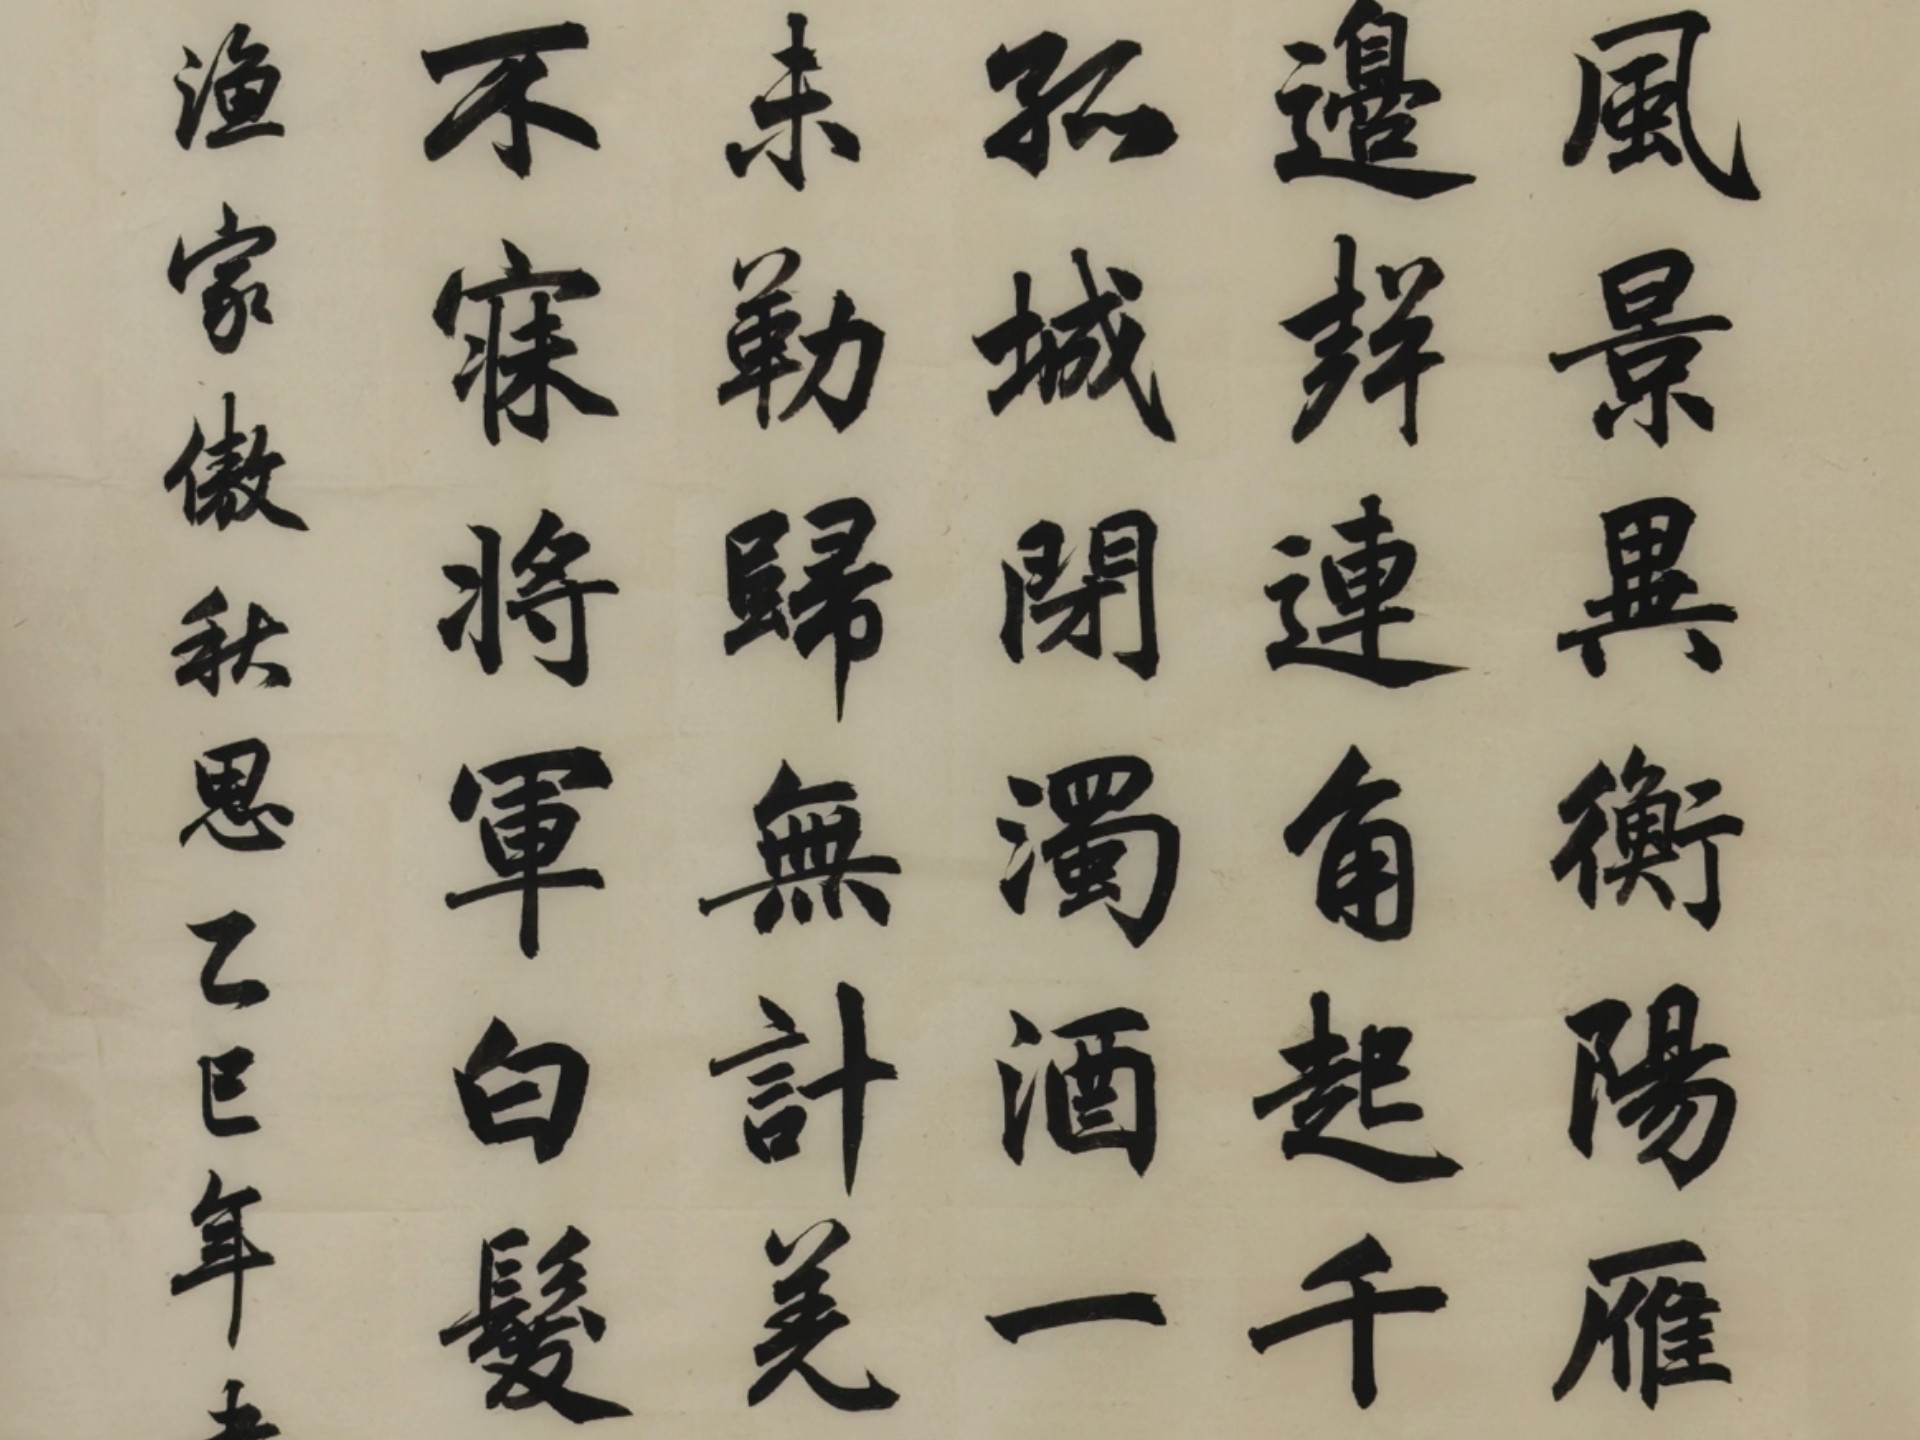 風景異衡陽雁
邊聲連角起千
孤城閉濁酒一
未勒歸無計羌
不寐將軍白髮
漁家傲秋思乙巳年